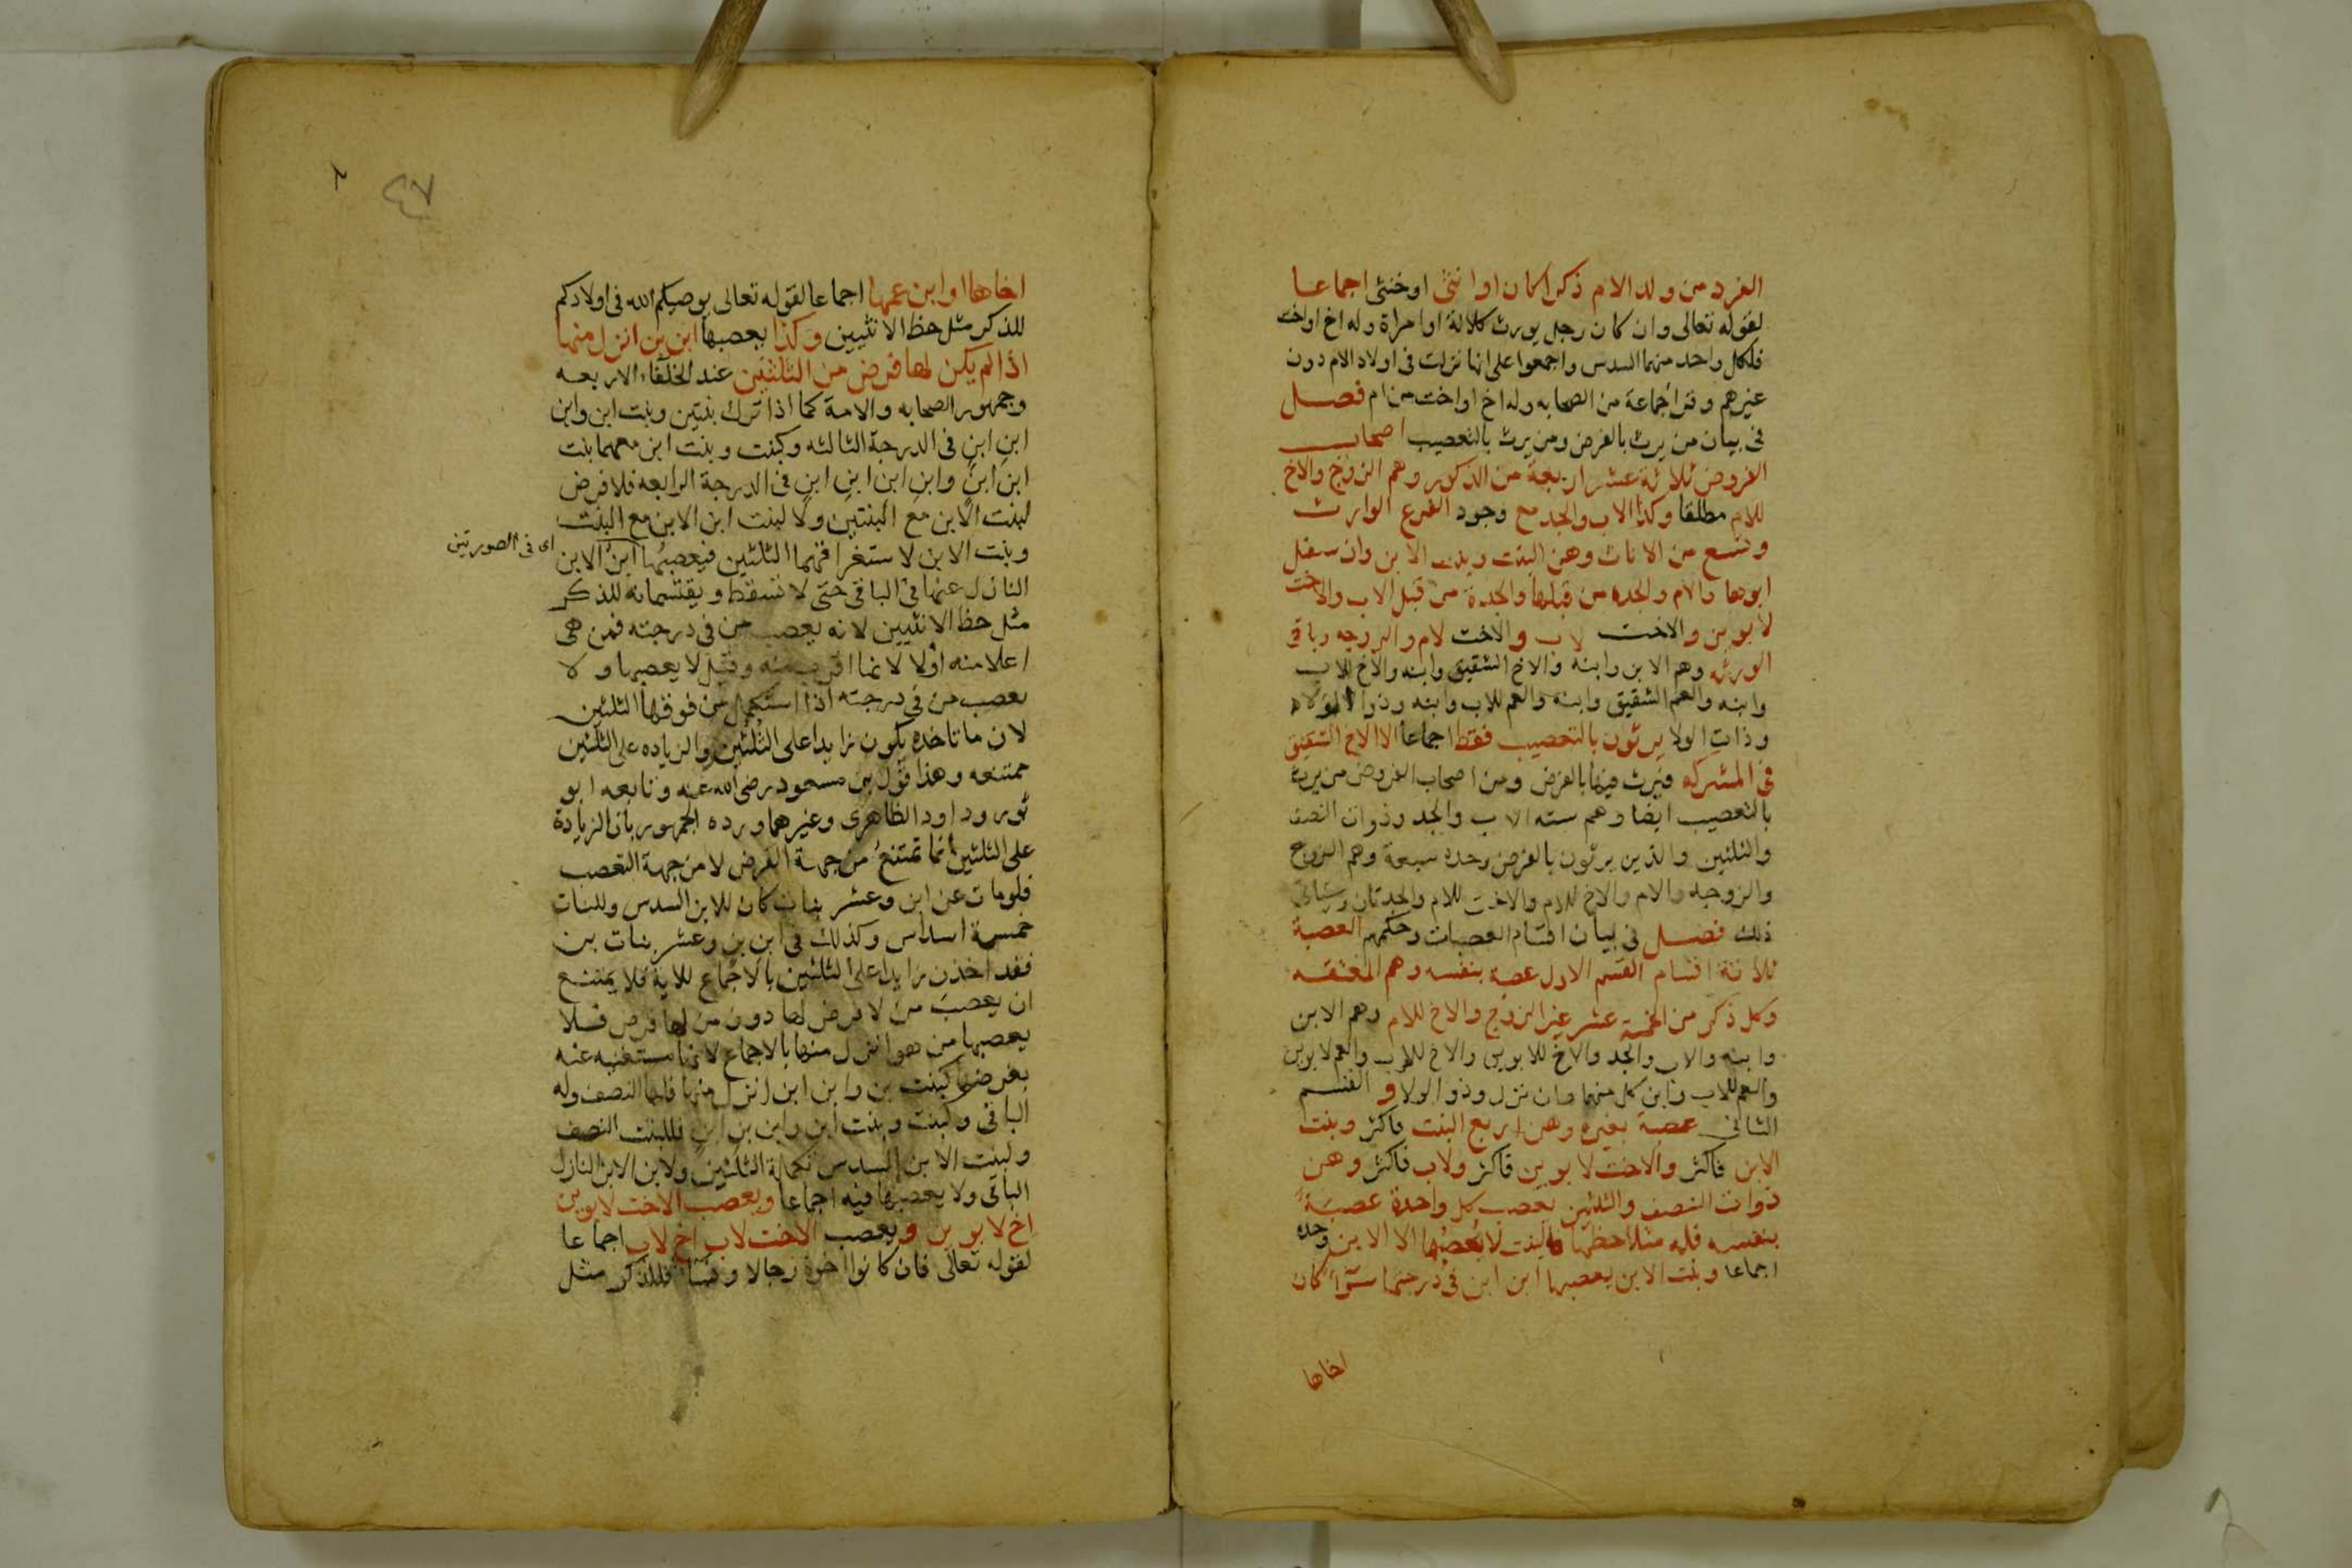 الفرد من ولد الام ذكرا كان او انثى او خنثى اجماعا
لقوله تعالى وان كان رجل يورث كلالة او امراة وله اخ او اخت
فلكل واحد منهما السدس واجمعوا على انها نزلت فى اولاد الام دون
غيرهم وقرا جماعة من الصحابه وله اخ او اخت من ام فصل
فى بيان من يرث بالفرض ومن يرث بالتعصيب اصحاب
الفروض ثلاثة عشر اربعة من الذكور وهم الزوج والاخ
للام مطلقا وكذا الاب والجد مع وجود الفرع الوارث
وتسع من الاناث وهن البنت وبنت الابن وان سفل
ابوها والام والجده من قبلها والجدة من قبل الاب والاخت
لابوين والاخت لاب والاخت لام والزوجه وباقى
الورثه وهم الابن وابنه والاخ الشقيق وابنه والاخ للاب
وابنه والعم الشقيق وابنه والعم للاب وابنه وذوا الولاء
وذات الولا يرثون بالتعصيب فقط اجماعا الا الاخ الشقيق
فى المشركه فيرث فيها بالفرض ومن اصحاب الفروض من يرث
بالتعصيب ايضا وهم سته الاب والجد وذوات النصف
والثلثين والذين يرثون بالفرض وحده سبعة وهم الزوج
والزوجه والام والاخ للام والاخت للام والجدتان وسياتى
ذلك فصل فى بيان اقسام العصبات وحكمهم العصبة
ثلاثة اقسام القسم الاول عصبة بنفسه وهم المعتقه
وكل ذكر من الخمسة عشر غير الزوج والاخ للام وهم الابن
وابنه والاب والجد والاخ للابوين والاخ للاب والعم لابوين
والعم للاب وابن كل منهما وان نزل وذوا الولا و القسم
الثانى عصبة بغيره وهن اربع البنت فاكثر وبنت
الابن فاكثر والاخت لابوين فاكثر ولاب فاكثر وهن
ذوات النصف والثلثين يعصب كل واحدة عصبة
بنفسه فله مثلا حظها فالبنت لا يعصبها الا الابن وحده
اجماعا وبنت الابن يعصبها ابن ابن فى درجتها سوآ كان
اخاها
٤٧
اخاها او ابن عمها اجماعا لقوله تعالى يوصيكم الله فى اولادكم
للذكر مثل حظ الانثيين وكذا يعصبها ابن بن انزل منها
اذا لم يكن لها فرض من الثلثين عند الخلفاء الاربعه
وجمهور الصحابه والامة كما اذا ترك بنتين وبنت ابن وابن
ابن ابن فى الدرجة الثالثه وكبنت وبنت ابن معهما بنت
ابن ابن وابن ابن ابن ابن فى الدرجة الرابعه فلا فرض
لبنت الابن مع البنتين ولا لبنت ابن الابن مع البنت
وبنت الابن لاستغراقهما الثلثين فيعصبها ابن الابن
اى فى الصورتين
النازل عنها فى الباقى حتى لا تسقط ويقتسمانه للذكر
مثل حظ الانثيين لانه يعصب من فى درجته فمن هى
اعلا منه اولا لانها اقرب منه وقيل لا يعصبها ولا
يعصب من فى درجته اذا استكمل من فوقها الثلثين
لان ما تاخذه يكون زايدا على الثلثين والزياده على الثلثين
ممتنعه وهذا قول بن مسعود رضى الله عنه وتابعه ابو
ثور وداود الظاهرى وغيرهما ورده الجمهور بان الزيادة
على الثلثين انما تمتنع من جهة الفرض لا من جهة التعصب
فلو مات عن ابن وعشر بنات كان للابن السدس وللبنات
خمسة اسداس وكذلك فى ابن بن وعشر بنات بن
فقد اخذن زايدا على الثلثين بالاجماع للاية فلا يمتنع
ان يعصب من لا فرض لها دون من لها فرض فلا
يعصبها من هو انزل منها بالاجماع لانها مستغنيه عنه
بفرضها كبنت بن وابن ابن انزل منها فلها النصف وله
الباقى وكبنت وبنت ابن وابن بن ابن فللبنت النصف
ولبنت الابن السدس تكملة الثلثين ولابن الابن النازل
الباقى ولا يعصبها فيه اجماعا ويعصب الاخت لابوين
اخ لابوين ويعصب الاخت لاب اخ لاب اجماعا
لقوله تعالى فان كانوا اخوة رجالا ونسآ فللذكر مثل